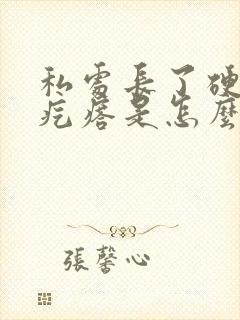 私处長了硬
疙瘩是怎麼
張馨心